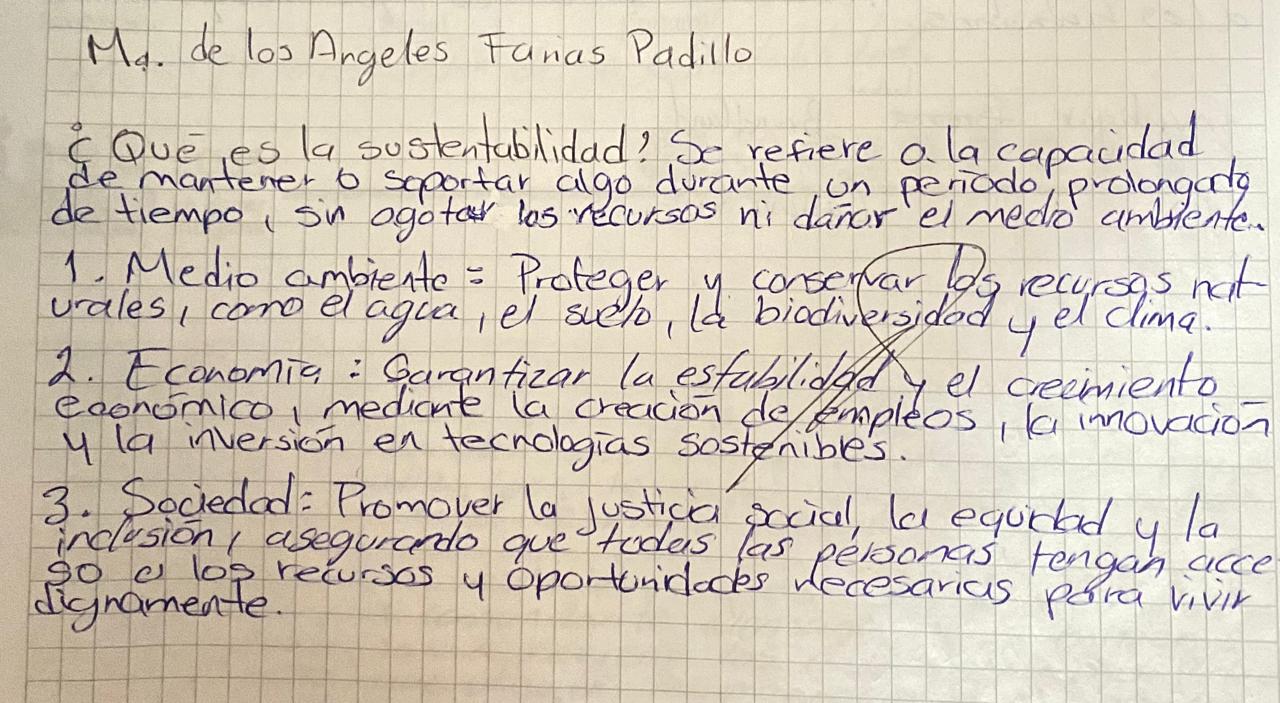 Ma. de los Angeles Farias Padillo
¿Qué es la sustentabilidad? Se refiere a la capacidad
de mantener o soportar algo durante un periodo prolongado
de tiempo, sin agotar los recursos ni dañar el medio ambiente.
1. Medio ambiente = Proteger y conservar los recursos nat
urales, como el agua, el suelo, la biodiversidad y el clima.
2. Economía : Garantizar la estabilidad y el crecimiento
económico, mediante la creación de empleos, la innovación
y la inversión en tecnologías sostenibles.
3. Sociedad: Promover la justicia social, la equidad y la
inclusión, asegurando que todas las personas tengan acce
so a los recursos y oportunidades necesarias para vivir
dignamente.